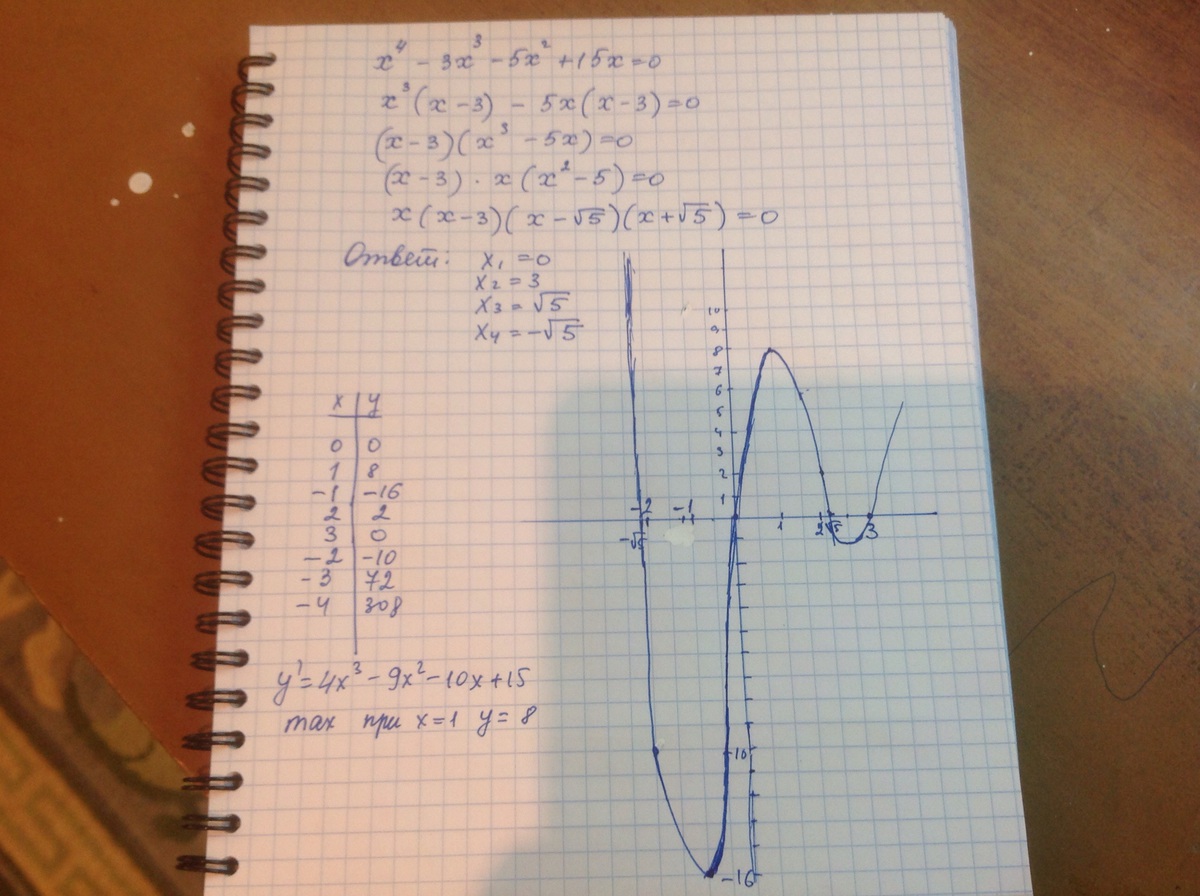 x⁴ - 3x³ - 5x² + 15x = 0
x³(x - 3) - 5x(x - 3) = 0
(x - 3)(x³ - 5x) = 0
(x - 3) · x(x² - 5) = 0
x(x - 3)(x - √5)(x + √5) = 0
Ответ: x₁ = 0
x₂ = 3
x₃ = √5
x₄ = -√5
x | y
0 | 0
1 | 8
-1 | -16
2 | 2
3 | 0
-2 | -10
-3 | 72
-4 | 308
y' = 4x³ - 9x² - 10x + 15
max при x = 1 y = 8
10
9
8
7
6
5
4
3
2
1
-2 -1
-√5 1 2 √5 3
-10
-16